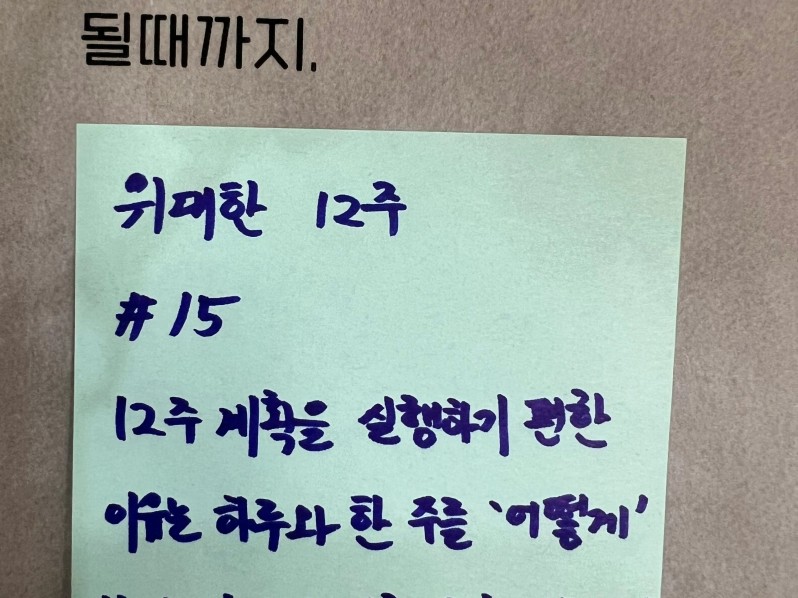 될때까지.
위대한 12주
#15
12주 계획을 실행하기 편한
이유는 하루와 한 주를 '어떻게'